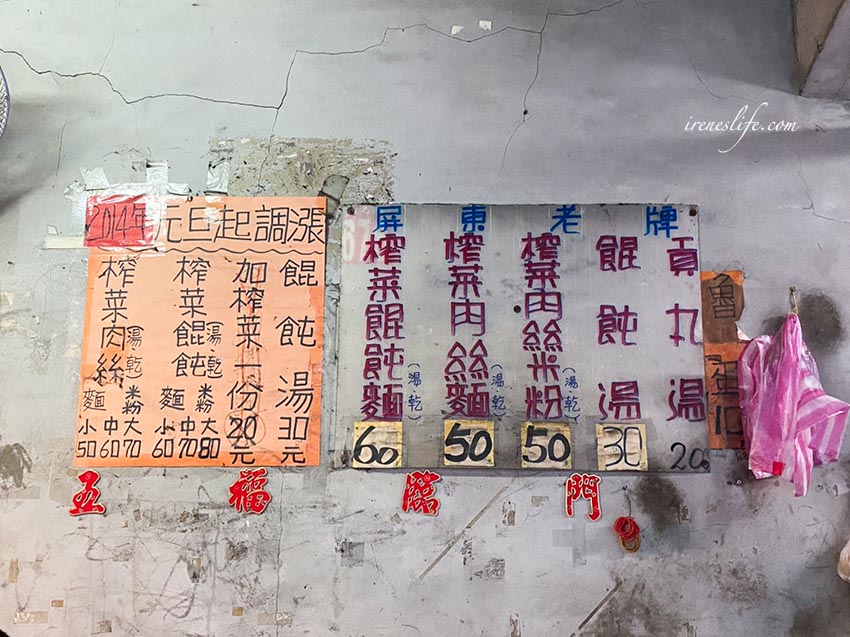 ireneslife.com
2014年元旦起調漲
餛飩湯30元
加榨菜一份20元
榨菜餛飩湯.乾麵米粉
小中大
607080
榨菜肉絲湯.乾麵米粉
小中大
506070
屏東老牌
貢丸湯20
餛飩湯30
榨菜肉絲米粉(湯.乾)50
榨菜肉絲麵(湯.乾)50
榨菜餛飩麵(湯.乾)60
五福臨門